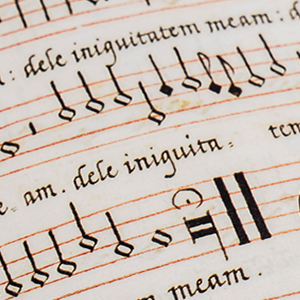 : dele iniquitatem meam : d
e . am . dele iniquita - tem
meam .